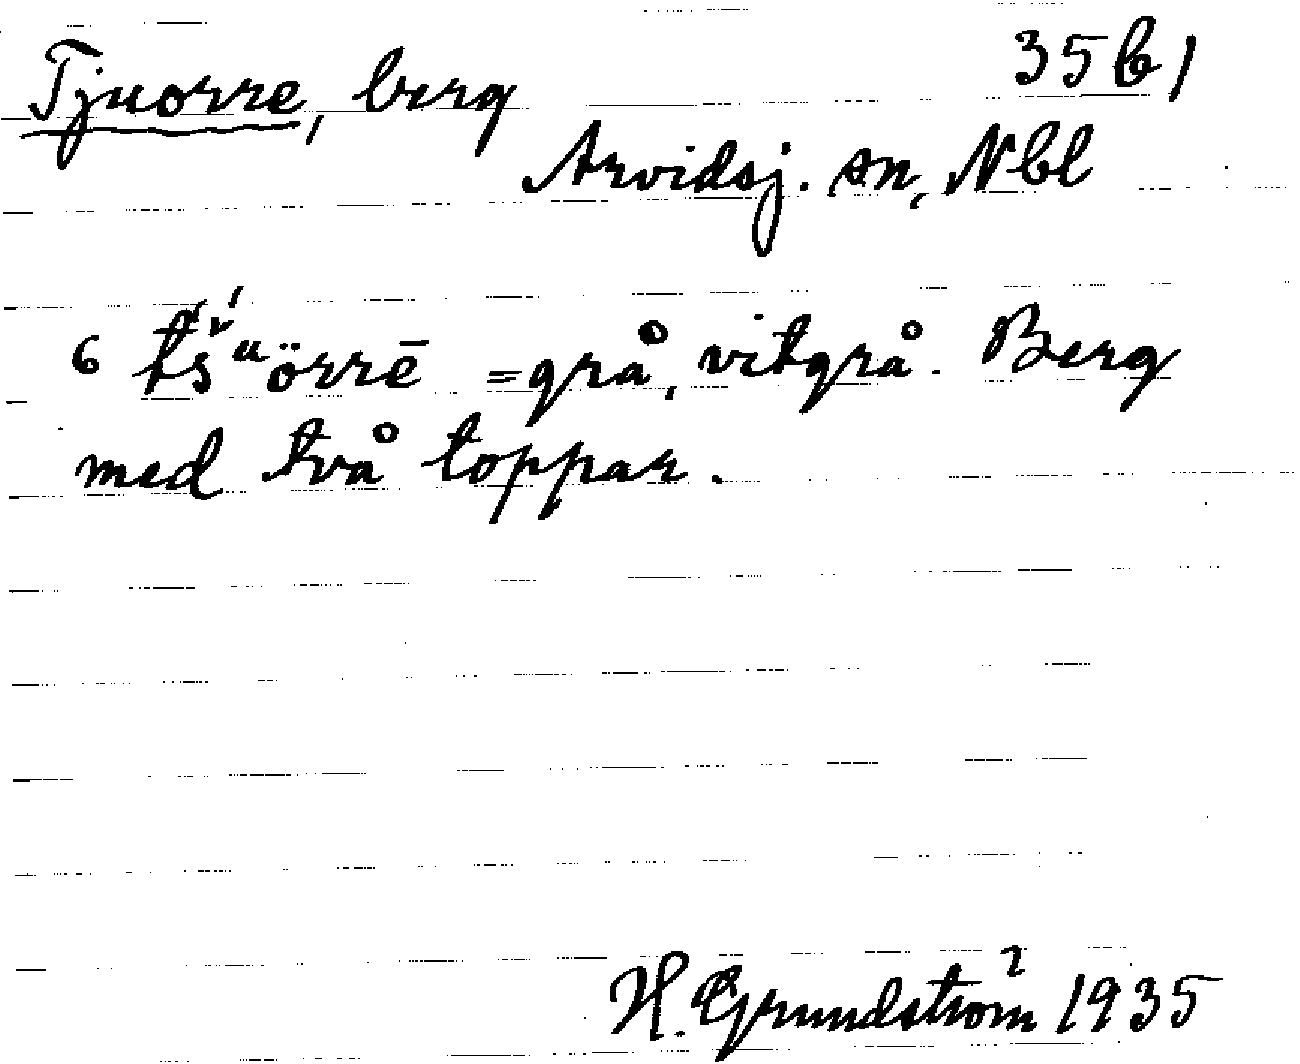 Tjuorre, berg 35 b 1
Arvidsj. sn, Nbl
6 tš́ᵘörrē = grå, vitgrå. Berg
med två toppar.
H. Grundström 1935